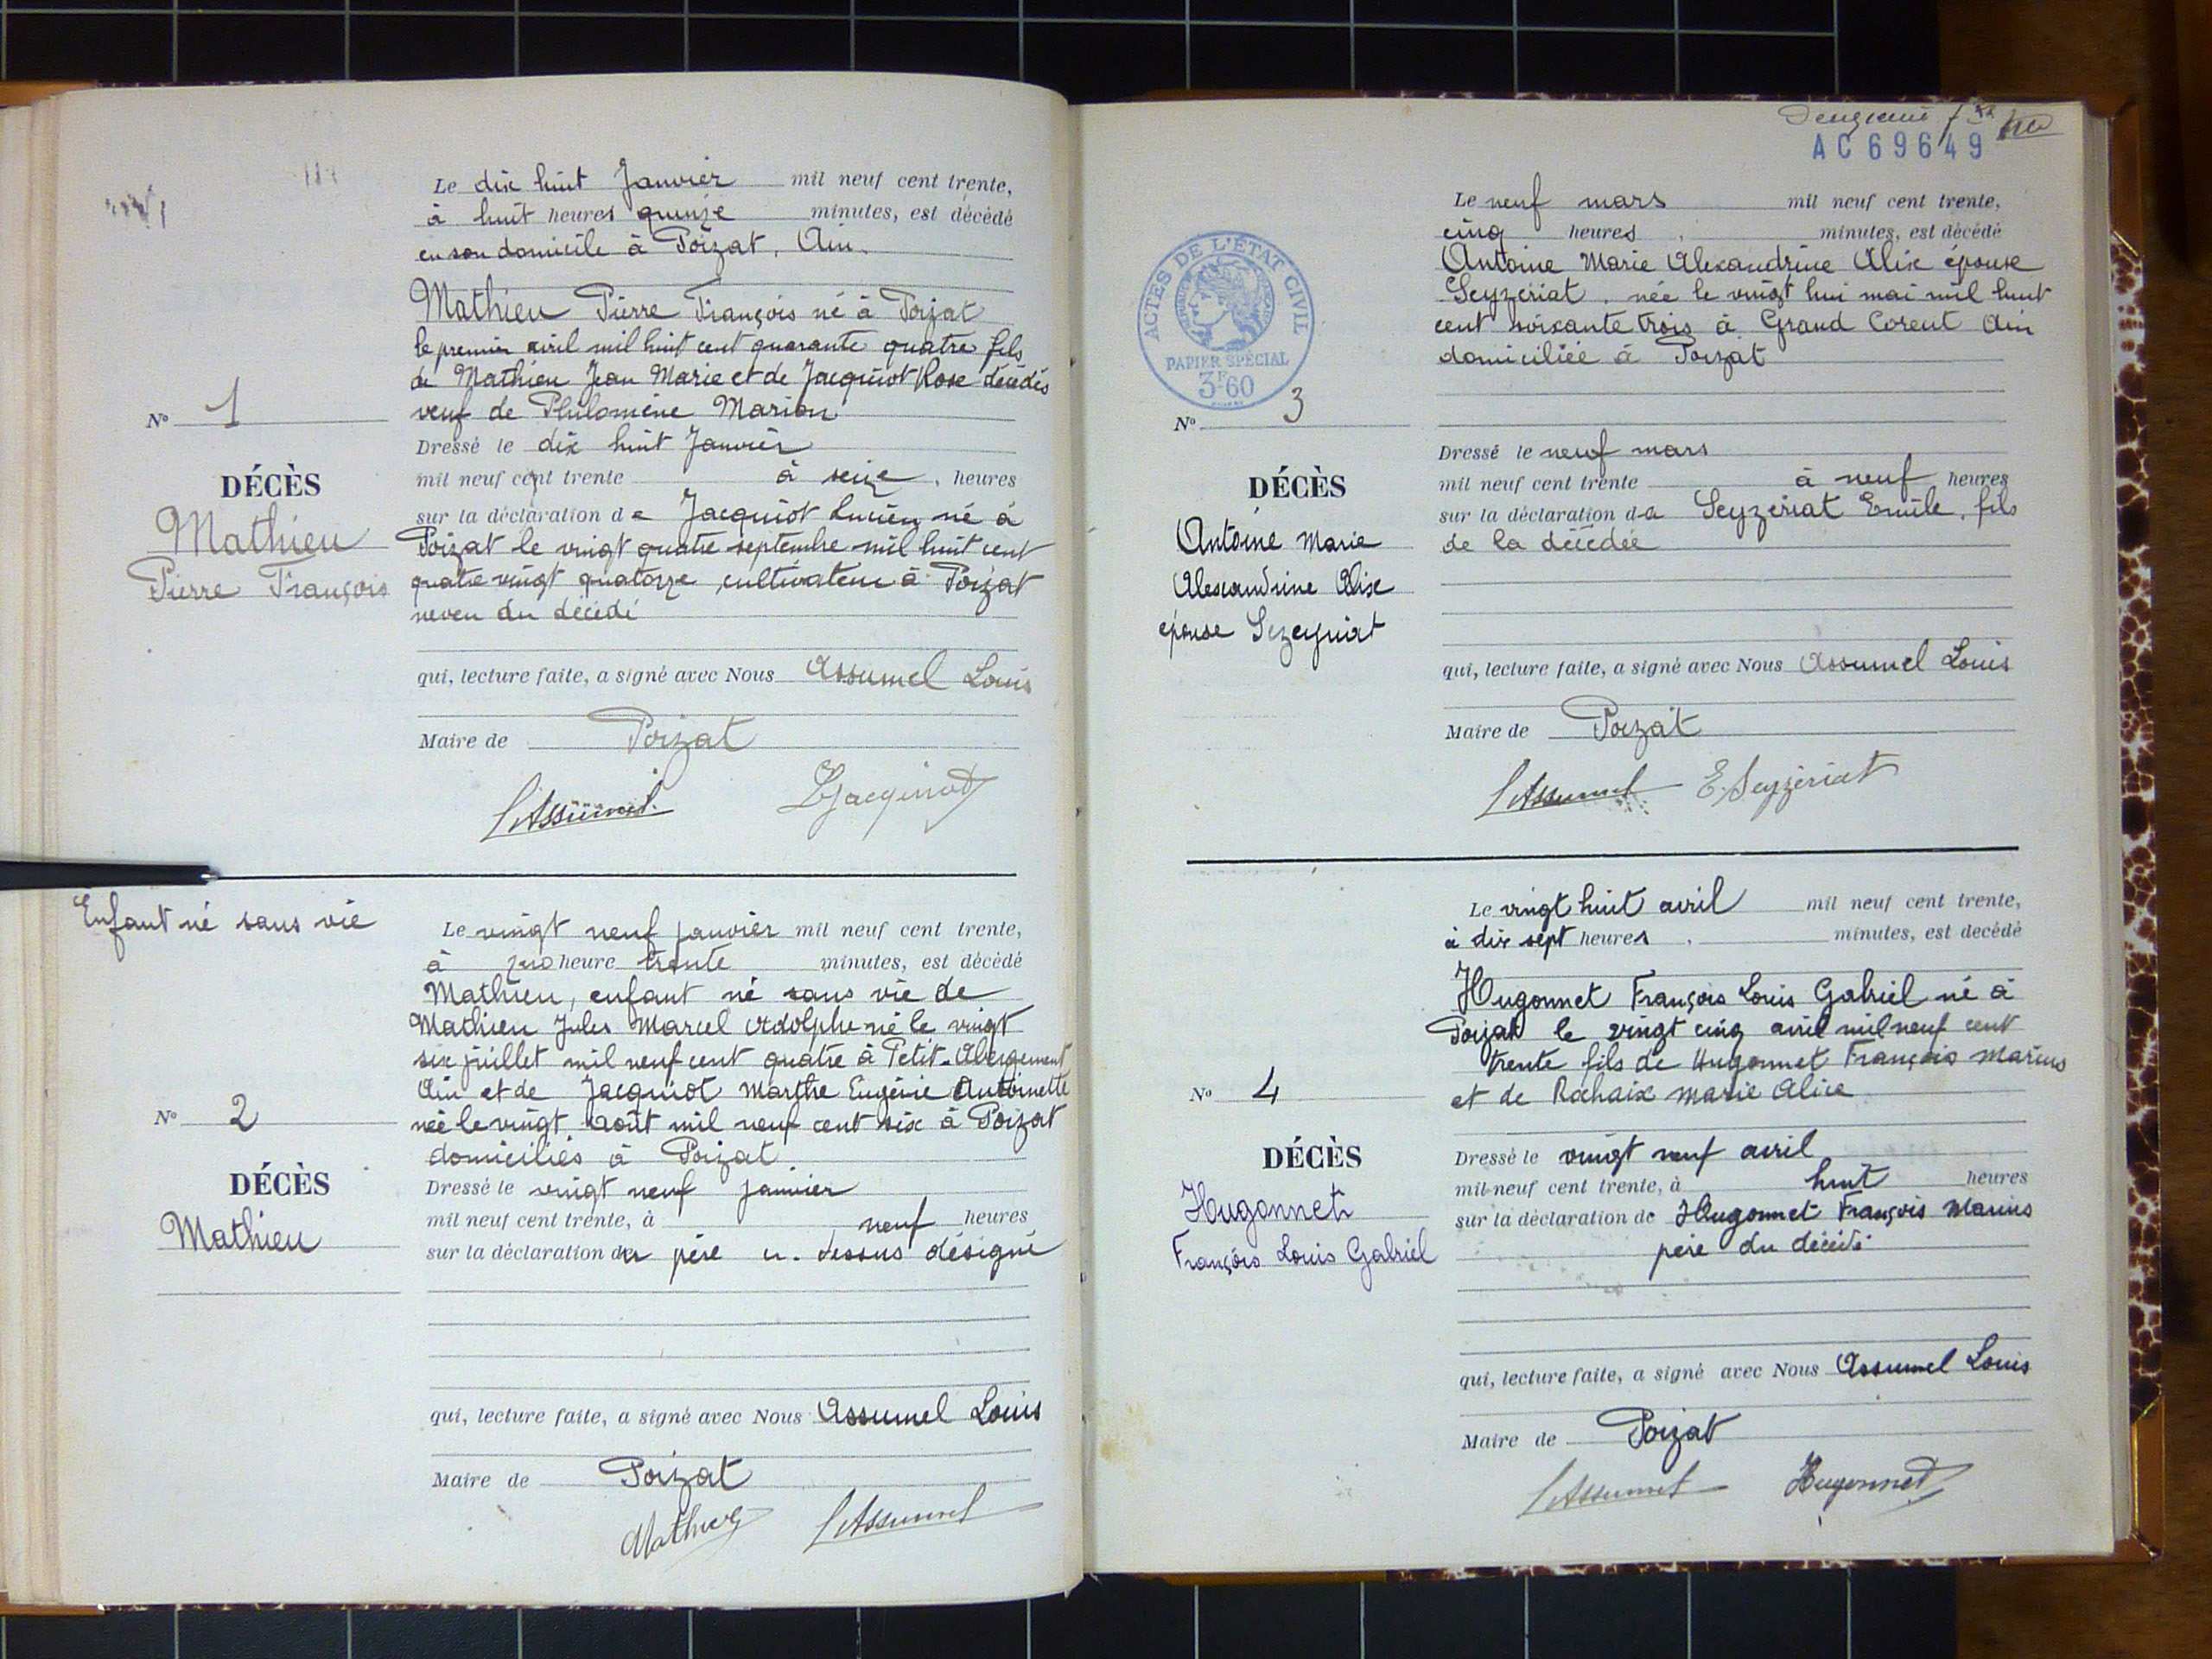 Le dix huit Janvier mil neuf cent trente,
à huit heures quinze minutes, est décédé
en son domicile à Poizat, Ain.
Mathieu Pierre François né à Poizat
le premier avril mil huit cent quarante quatre fils
de Mathieu Jean Marie et de Jacquiot Rose décédés
veuf de Philomène Marion
Nº 1
Dressé le dix huit Janvier
mil neuf cent trente à seize heures
DÉCÈS
Mathieu
Pierre François
sur la déclaration de Jacquiot Lucien né à
Poizat le vingt quatre septembre mil huit cent
quatre vingt quatorze cultivateur à Poizat
neveu du décédé
qui, lecture faite, a signé avec Nous Assumel Louis
Maire de Poizat
LAssumel LJacquiot
Enfant né sans vie
Le vingt neuf janvier mil neuf cent trente,
à heure trente minutes, est décédé
Mathieu, enfant né sans vie de
Mathieu Jules Marcel Adolphe né le vingt
six juillet mil neuf cent quatre à Petit-Abergement
Ain et de Jacquiot Marthe Eugénie Antoinette
née le vingt août mil neuf cent six à Poizat
domiciliés à Poizat
Nº 2
DÉCÈS
Mathieu
Dressé le vingt neuf janvier
mil neuf cent trente, à neuf heures
sur la déclaration du père ci-dessus désigné
qui, lecture faite, a signé avec Nous Assumel Louis
Maire de Poizat
Mathieu LAssumel
AC69649
Le neuf mars mil neuf cent trente,
cinq heures, minutes, est décédé
Antoine Marie Alexandrine Alix épouse
Seyzériat, née le vingt hui mai mil huit
cent soixante trois à Grand Corent Ain
domiciliée à Poizat
ACTES DE L'ÉTAT CIVIL
PAPIER SPÉCIAL
3F60
Nº 3
DÉCÈS
Antoine Marie
Alexandrine Alix
épouse Sezeyriat
Dressé le neuf mars
mil neuf cent trente à neuf heures
sur la déclaration da Seyzériat Emile, fils
de la décédée
qui, lecture faite, a signé avec Nous Assumel Louis
Maire de Poizat
LAssumel E. Seyzériat
Le vingt huit avril mil neuf cent trente,
à dix sept heures, minutes, est decédé
Hugonnet François Louis Gabriel né à
Poizat le vingt cinq avril mil neuf cent
trente fils de Hugonnet François Marius
et de Rochaix Marie Alice
Nº 4
DÉCÈS
Hugonnet
François Louis Gabriel
Dressé le vingt neuf avril
mil neuf cent trente, à huit heures
sur la déclaration de Hugonnet François Marius
père du décédé
qui, lecture faite, a signé avec Nous Assumel Louis
Maire de Poizat
LAssumel Hugonnet